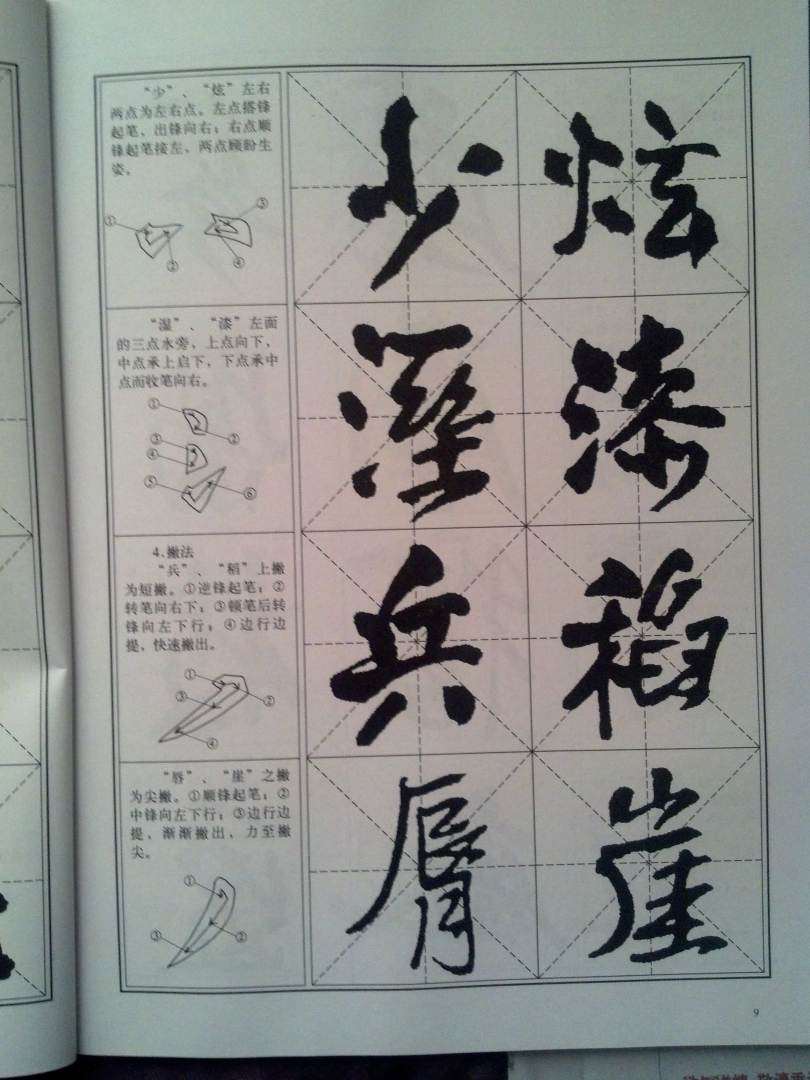 “少”、“炫”左右
两点为左右点。左点搭锋
起笔、出锋向右；右点顺
锋起笔接左、两点顾盼生
姿。
① ③
② ④
少 炫
“湿”、“漆”左面
的三点水旁，上点向下，
中点承上启下，下点承中
点而收笔向右。
①
②
③
④
⑤ ⑥
溼 漆
4.撇法
“兵”、“稻”上撇
为短撇。①逆锋起笔；②
转笔向右下；③顿笔后转
锋向左下行；④边行边
提，快速撇出。
①
③ ②
④
兵 稻
“唇”、“崖”之撇
为尖撇。①顺锋起笔；②
中锋向左下行；③边行边
提，渐渐撇出，力至撇
尖。
①
③ ②
脣 崖
9